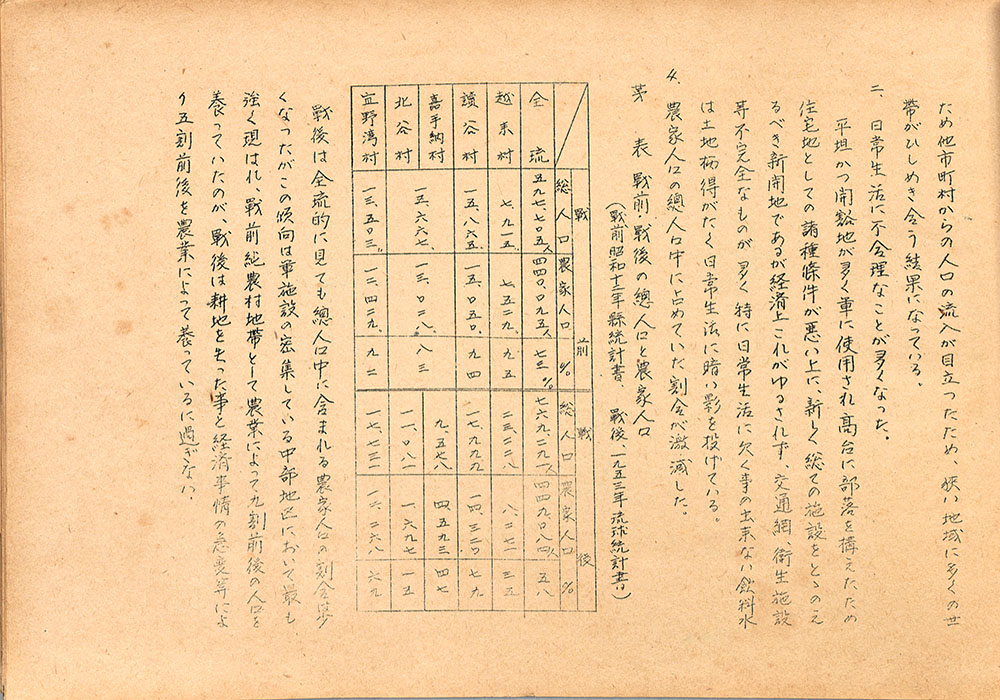 ため他市町村からの人口の流入が目立つたため、狭い地域に多くの世
帯がひしめき合う結果になっている。
二、日常生活に不合理なことが多くなった。
平坦かつ開豁地が多く軍に使用され高台に部落を構えたため
住宅地としての諸種條件が悪い上に、新しく総ての施設をとゝのえ
るべき新開地であるが経済上これがゆるされず、交通網、衛生施設
等不完全なものが多く特に日常生活に欠く事の出来ない飲料水
は土地柄得がたく日常生活に暗い影を投げている。
4、農家人口の總人口中に占めていた割合が激減した。
第 表 戰前・戰後の總人口と農家人口
(戰前昭和十二年縣統計書、戰後、一九五三年流球統計書)
戰前 戰後
総人口 農家人口 % 総人口 農家人口 %
全流 五九七、七〇五人 四四〇、〇九五人 七三% 七六九、二九一人 四四九、〇八四人 五八
越来村 七、九一五 七、五二九 九五 二三、二二八 八、二七一 三五
讀谷村 一五、八六五 一五、〇五〇 九四 一七、九九九 一四、三二〇 七九
嘉手納村 一五、六六七 一三、〇二八 八三 九、五七八 四、五九三 四七
北谷村 一一、〇八一 一、六九七 一五
宜野湾村 一三、五〇三 一二、四二九 九二 一七、七三二 一二、二六八 六九
戰後は全琉的に見ても總人口中に含まれる農家人口の割合は少
くなったがこの傾向は軍施設の密集している中部地区において最も
強く現はれ、戰前純農村地帯として農業によって九割前後の人口を
養っていたのが、戰後は耕地を失った事と経済事情の急変等によ
り五割前後を農業によって養っているに過ぎない。